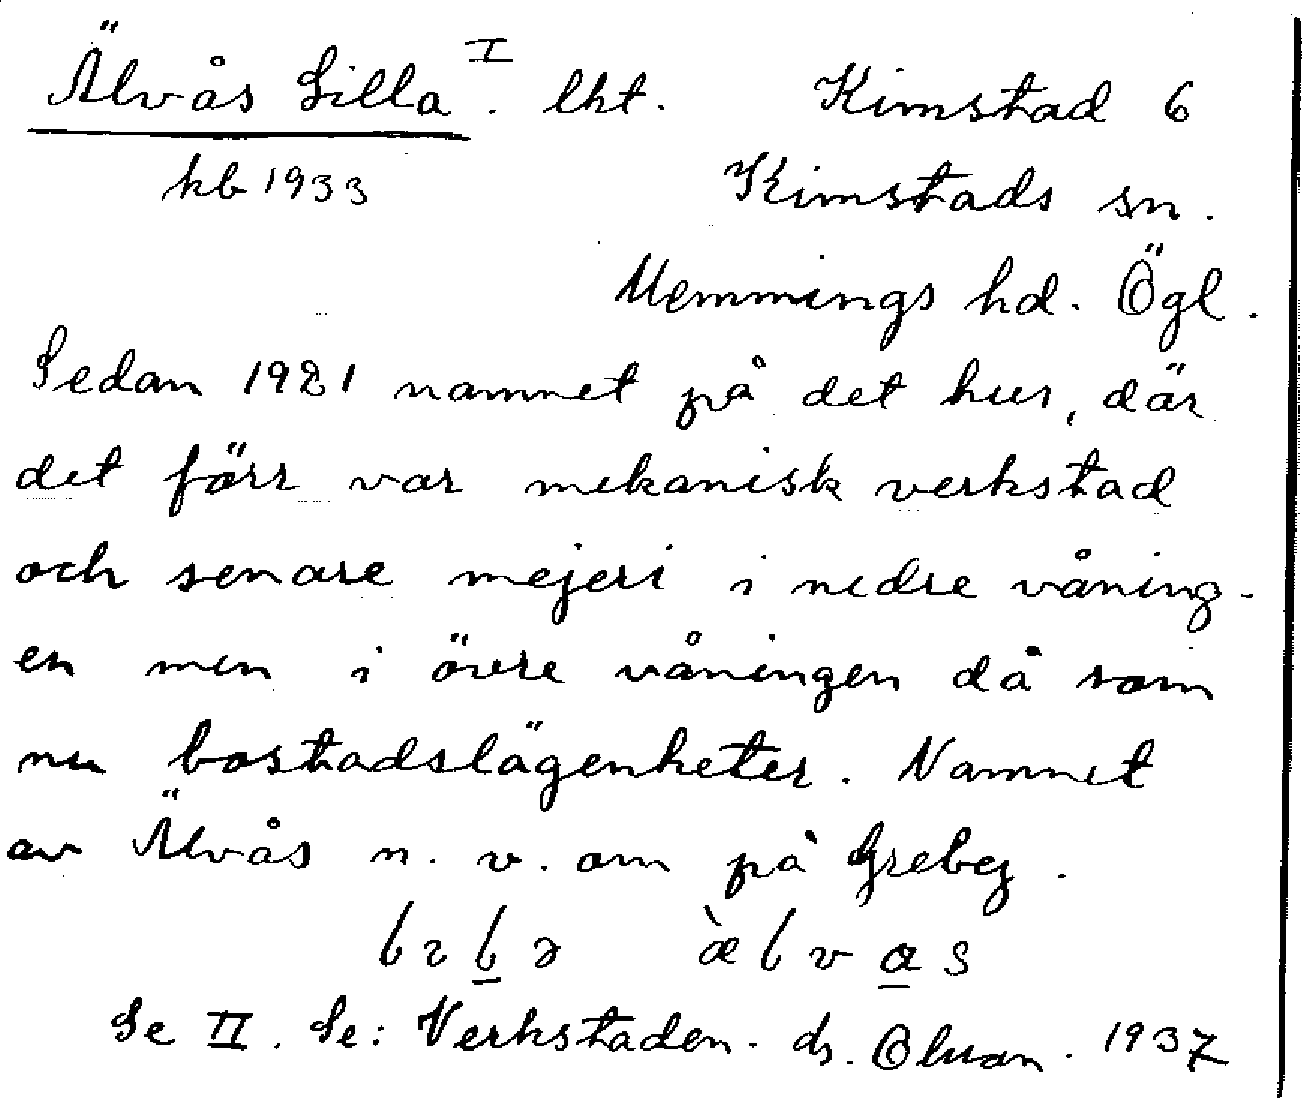 Älvås Lilla I. lht. Kimstad 6
kb 1933 Kimstads sn.
Memmings hd. Ögl.
Sedan 1921 namnet på det hus, där
det förr var mekanisk verkstad
och senare mejeri i nedre våning-
en men i övre våningen då som
nu bostadslägenheter. Namnet
av Älvås n. v. om på Greby.
Se II. Se: Verkstaden. ds. 1937